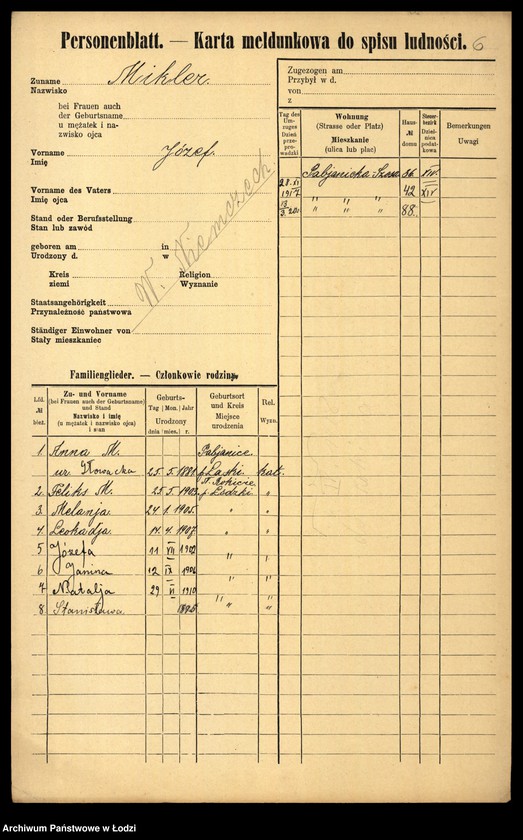 Personenblatt. — Karta meldunkowa do spisu ludności. 6
Zuname Mikler.
Nazwisko
bei Frauen auch
der Geburtsname
u mężatek i na-
zwisko ojca
Vorname Józef.
Imię
Vorname des Vaters
Imię ojca
Stand oder Berufsstellung
Stan lub zawód
geboren am in
Urodzony d. w
Kreis Religion
ziemi Wyznanie
Staatsangehörigkeit
Przynależność państwowa
Ständiger Einwohner von
Stały mieszkaniec
W. Niemczech.
Zugezogen am
Przybył w d.
von
z
Tag des Um-
zuges
Dzień
prze-
prowadzki
Wohnung
(Strasse oder Platz)
Mieszkanie
(ulica lub plac)
Haus-
№
domu
Steuer-
bezirk
Dziel-
nica
podat-
kowa
Bemerkungen
Uwagi
Pabjanicka Szosa 86. XIV.
28.XI
1917 " " 42 XIV
13
3.20. " " 88.
Familienglieder. — Członkowie rodziny.
Lfd.
№
bież.
Zu- und Vorname
(bei Frauen auch der Geburtsname)
und Stand
Nazwisko i imię
(u mężatek i nazwisko ojca)
i stan
Geburts-
Tag Mon. Jahr
Urodzony
dnia mies. r.
Geburtsort
und Kreis
Miejsce
urodzenia
Rel.
Wyzn.
1 Anna M. Pabjanice.
ur. 25. 5. 1881 p. Łaski kat.
2. Feliks M. 25 5. 1903 p. Łódzki "
3. Melanja. 24 1. 1905. " "
4. Leokadja. 14. 4. 1907. " "
5 Józefa 11 VII 1912 " "
6 Janina 12 IX 1906 " "
7 Natalja 29 VI 1910 " "
8 Stanisława. " "
Archiwum Państwowe w Łodzi